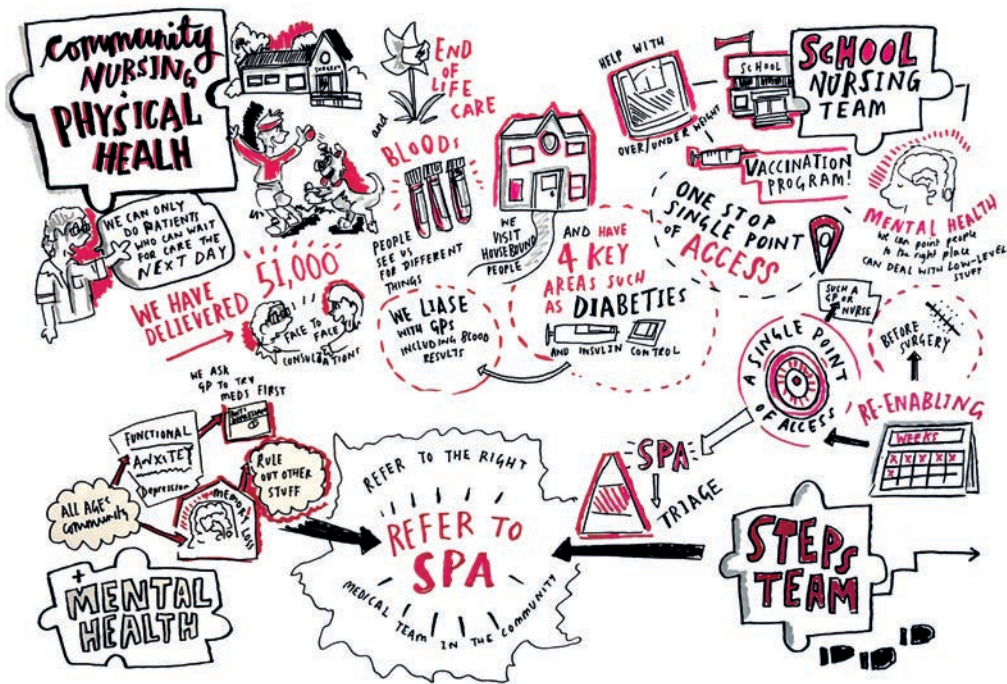 Community
NURSING
+
PHYSICAL
HEALH
SURGERY
and
END
OF
LIFE
CARE
BLOODS
WE CAN ONLY
DO PATIENTS
WHO CAN WAIT
FOR CARE THE
NEXT DAY
WE HAVE
DELIEVERED
51,000
FACE TO
FACE
CONSULTATIONS
PEOPLE
SEE US
FOR DIFFERENT
THINGS
WE
VISIT
HOUSEBOUND
PEOPLE
WE LIASE
WITH GPs
INCLUDING BLOOD
RESULTS
AND HAVE
4 KEY
AREAS SUCH
AS DIABETIES
AND INSULIN CONTROL
HELP WITH
OVER/UNDER WEIGHT
SCHOOL
SCHOOL
NURSING
TEAM
VACCINATION
PROGRAM!
ONE STOP
SINGLE POINT
OF ACCESS
MENTAL HEALTH
We can point people
to the right place
CAN DEAL WITH LOW-LEVEL
STUFF
SUCH A
GP OR
NURSE
A SINGLE POINT
OF ACCESS
BEFORE
SURGERY
RE-ENABLING
WEEKS
X X X X X
X
SPA
TRIAGE
STEPS
TEAM
WE ASK
GP TO TRY
MEDS FIRST
FUNCTIONAL
ANXITEY
Depression
ALL AGES
Community
MEMORY LOSS
RULE
OUT OTHER
STUFF
+
MENTAL
HEALTH
REFER TO THE RIGHT
REFER TO
SPA
MEDICAL TEAM IN THE COMMUNITY